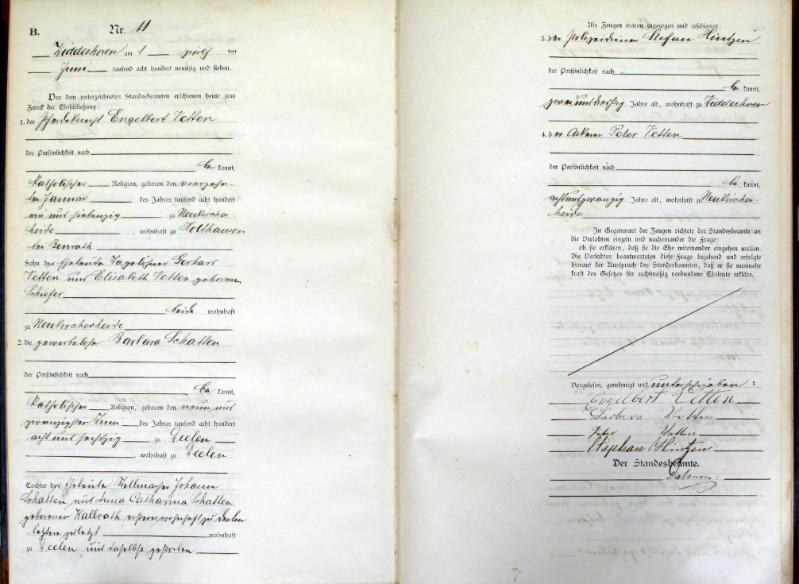 B.
Nr. 11
am 1
Juni tausend acht hundert neunzig und sieben.
Vor dem unterzeichneten Standesbeamten erschienen heute zum
Zweck der Eheschließung:
1. der Pferdeknecht Engelbert Vetten
der Persönlichkeit nach
be kannt,
katholischer Religion, geboren den vierzehn
ten Januar des Jahres tausend acht hundert
und siebenzig zu Neukircher
heide, wohnhaft zu Holthausen
bei Benrath
Sohn der Eheleute Tagelöhner Gerhard
Vetten und Elisabeth Vetten geborenen
Schiefer
beide wohnhaft
zu Neukircherheide
2. die gewerbelose Barbara Schatten
der Persönlichkeit nach
be kannt,
katholischer Religion, geboren den neun und
zwanzigsten Juni des Jahres tausend acht hundert
acht und sechzig zu
, wohnhaft zu
Tochter der Eheleute Johann
Schatten und Anna Catharina Schatten
geborener Kallrath wohnhaft zu
letztere zuletzt wohnhaft
zu und daselbst gestorben
Als Zeugen waren zugezogen und erschienen:
3. der Polizeidiener Stephan Hintzen
der Persönlichkeit nach
be kannt,
zwei und dreißig Jahre alt, wohnhaft zu
4. der Ackerer Peter Vetten
der Persönlichkeit nach
be kannt,
acht und zwanzig Jahre alt, wohnhaft zu Neukircher
heide
In Gegenwart der Zeugen richtete der Standesbeamte an
die Verlobten einzeln und nacheinander die Frage:
ob sie erklären, daß sie die Ehe miteinander eingehen wollen.
Die Verlobten beantworteten diese Frage bejahend und erfolgte
hierauf der Ausspruch des Standesbeamten, daß er sie nunmehr
kraft des Gesetzes für rechtmäßig verbundene Eheleute erkläre.
Vorgelesen, genehmigt und unterschrieben:
Engelbert Vetten
Barbara Vetten
Peter Vetten
Stephan Hintzen
Der Standesbeamte.